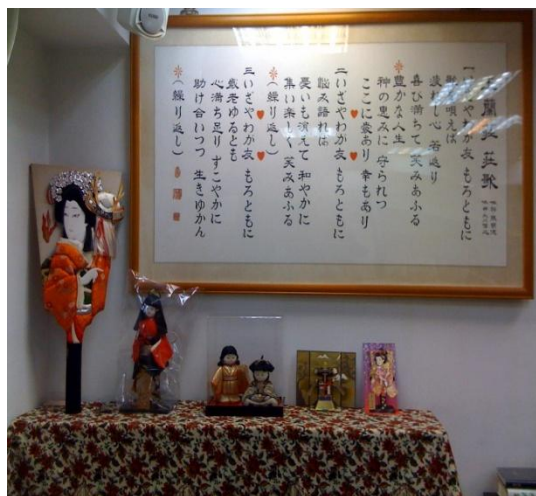 荘歌
一いざやわが友 もろともに
唄えば
心 若返り
喜び満ちて 笑みあふる
豊かな人生
神の恵みに 守られつ
ここに愛あり 幸もあり
二いざやわが友 もろともに
悩み語れば
憂いも消えて 和やかに
集い楽しく 笑みあふる
(繰り返し)
三いざやわが友 もろともに
敬老ゆるとも
心満ち足り すこやかに
助け合いつつ 生きゆかん
(繰り返し)